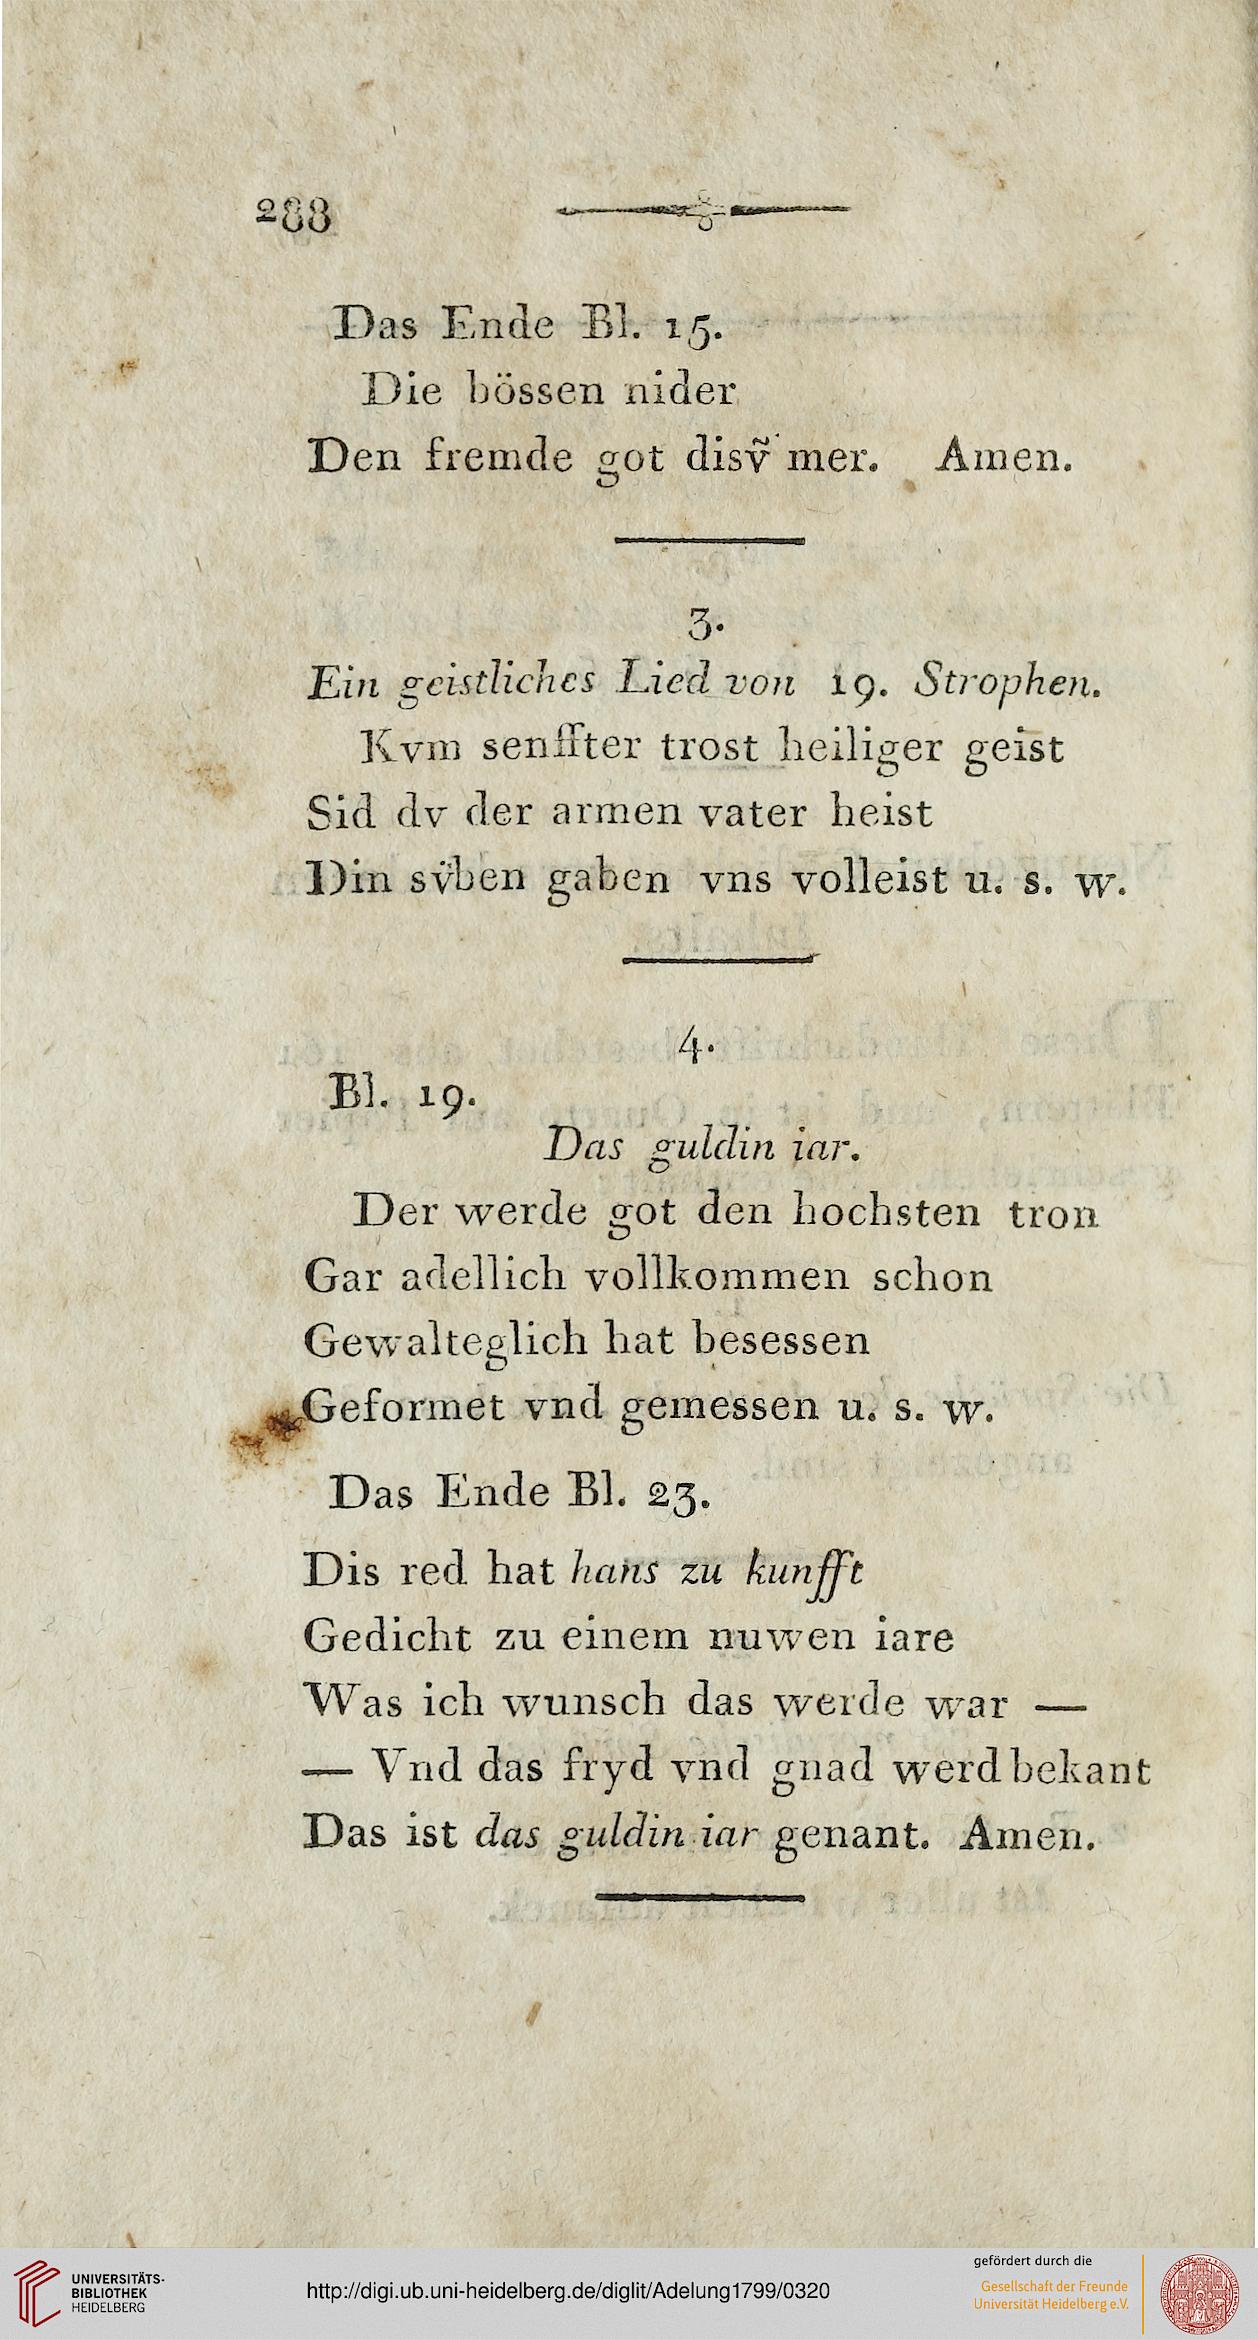 288
Das Ende Bl. 15.
Die bössen nider
Den fremde got disṽ mer. Amen.
3.
Ein geistliches Lied von 19. Strophen.
Kvm senffter trost heiliger geist
Sid dv der armen vater heist
Din sv̈ben gaben vns volleist u. s. w.
4.
Bl. 19.
Das guldin iar.
Der werde got den hochsten tron
Gar adellich vollkommen schon
Gewalteglich hat besessen
Geformet vnd gemessen u. s. w.
Das Ende Bl. 23.
Dis red hat hans zu kunfft
Gedicht zu einem nuwen iare
Was ich wunsch das werde war —
— Vnd das fryd vnd gnad werd bekant
Das ist das guldin iar genant. Amen.
UNIVERSITÄTS-
BIBLIOTHEK
HEIDELBERG
http://digi.ub.uni-heidelberg.de/diglit/Adelung1799/0320
gefördert durch die
Gesellschaft der Freunde
Universität Heidelberg e.V.